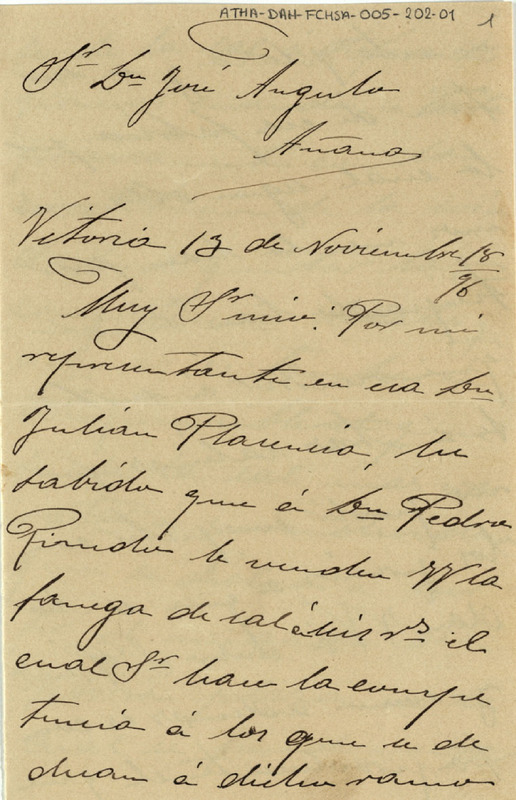 ATHA-DAH-FCHSA-005-202-01
1
Sr Dn José Angulo
Añana
Vitoria 13 de Noviembre 18
96
Muy Sr mio: Por mi
representante en esa Dn
Julián Plasencia, he
sabido que á Dn Pedro
le venden VV la
fanega de sal á seis rs el
cual Sr hace la compe
tencia á los que se de
dican á dicho ramo